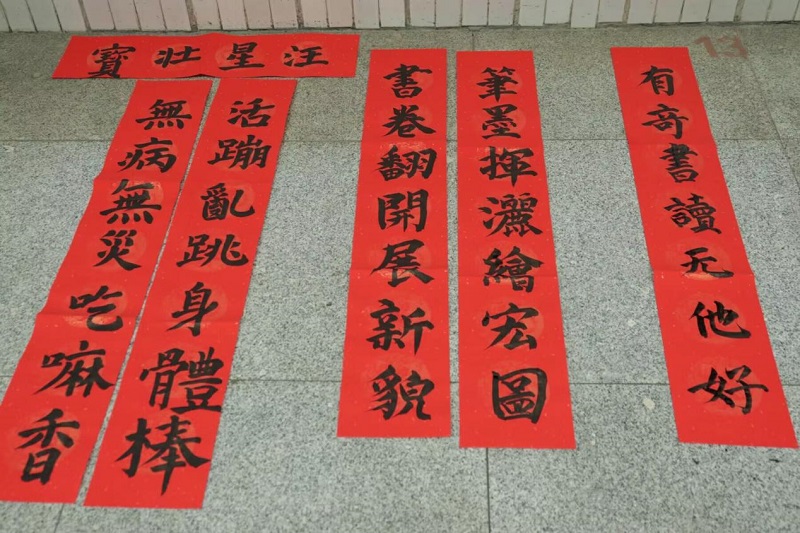 13
有奇書讀无他好
筆墨揮灑繪宏圖
書卷翻開展新貌
汪星壯寶
活蹦亂跳身體棒
無病無災吃嘛香